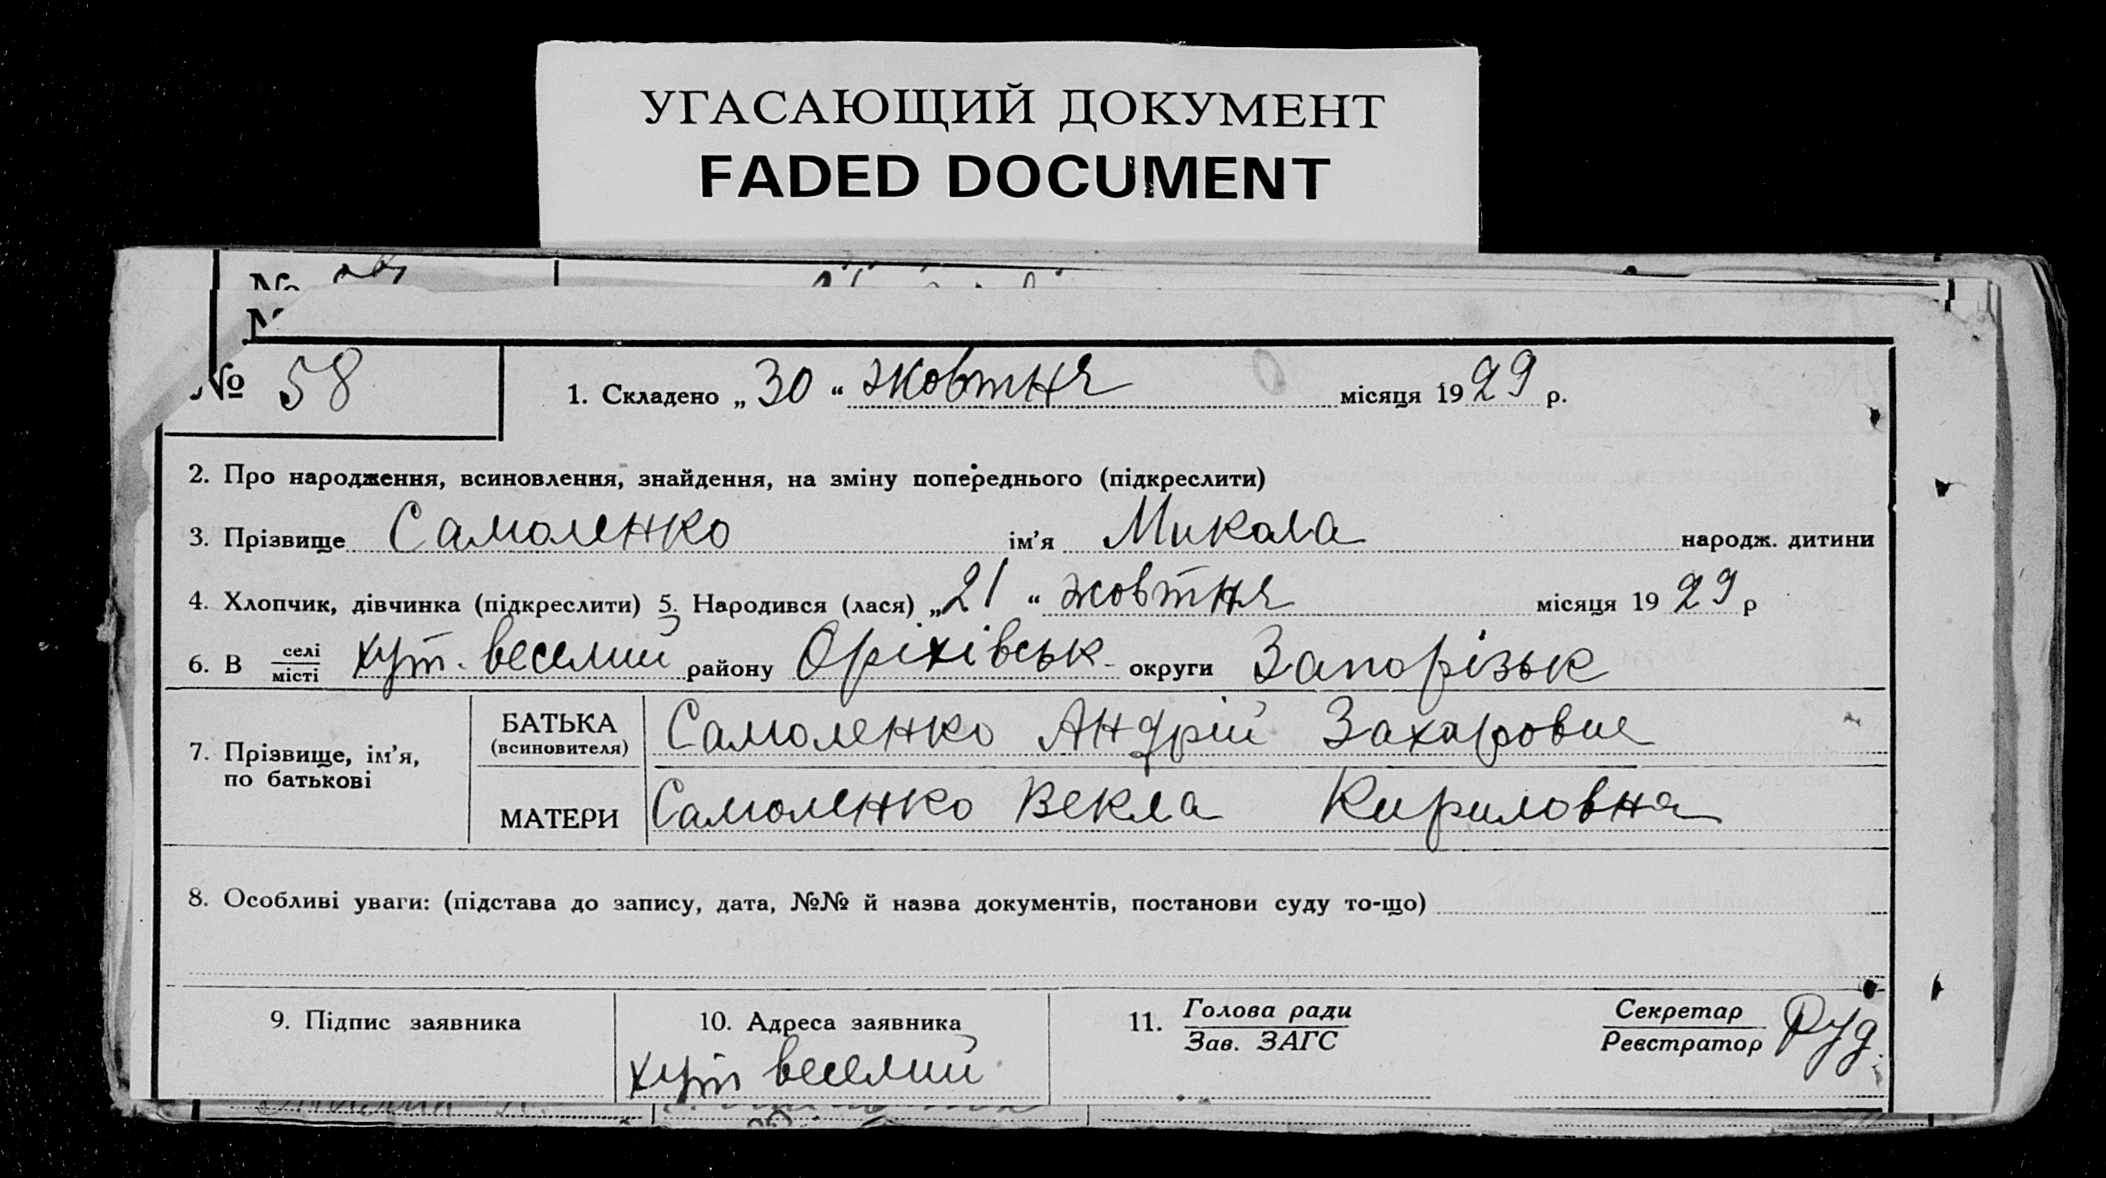 УГАСАЮЩИЙ ДОКУМЕНТ
FADED DOCUMENT
№
№ 58
1. Складено „30“ жовтня місяця 1929 р.
2. Про народження, всиновлення, знайдення, на зміну попереднього (підкреслити)
3. Прізвище Самоленко ім’я Микола народж. дитини
4. Хлопчик, дівчинка (підкреслити) 5. Народився (лася) „21“ жовтня місяця 1929 р
6. В селі/місті хут. веселий району Оріхівськ округи Запорізьк
7. Прізвище, ім’я, по батькові
БАТЬКА (всиновителя) Самоленко Андрій Захарович
МАТЕРИ Самоленко Векла Кириловна
8. Особливі уваги: (підстава до запису, дата, №№ й назва документів, постанови суду то-що)
9. Підпис заявника
10. Адреса заявника
хут веселий
11. Голова ради
Зав. ЗАГС
Секретар
Реєстратор
Руд